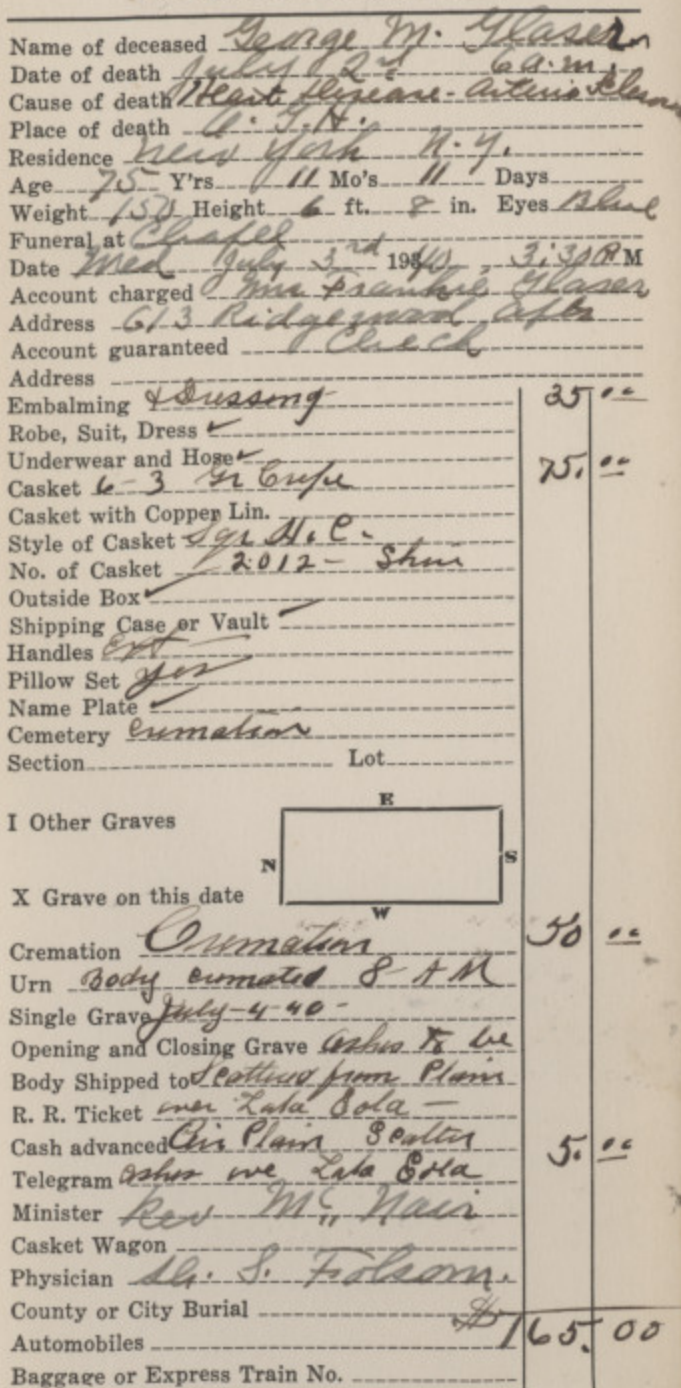 Name of deceased George M. Glaser
Date of death July 2nd 6 a.m.
Cause of death Heart Disease - Arterio
Place of death O. G. H.
Residence New York N. Y.
Age 75 Y'rs. 11 Mo's 11 Days
Weight 150 Height 6 ft. 8 in. Eyes Blue
Funeral at Chapel
Date Wed July 3rd 1940, 3:30 P M
Account charged Mrs Frankie Glaser
Address 613 Ridgewood Apts
Account guaranteed Check
Address
Embalming & Dressing 35 00
Robe, Suit, Dress ✓
Underwear and Hose ✓
Casket 6-3 Gr Crepe 75. 00
Casket with Copper Lin.
Style of Casket Sqr H. C.
No. of Casket 2012 -
Outside Box ✓
Shipping Case or Vault ✓
Handles Ext
Pillow Set yes
Name Plate ✓
Cemetery Cremation
Section Lot
E
I Other Graves
N S
X Grave on this date
W
Cremation Cremation 50 00
Urn Body cremated 8 AM
Single Grave July-4-40-
Opening and Closing Grave ashes to be
Body Shipped to Scattered from Plain
R. R. Ticket over Lake Eola -
Cash advanced Air Plain Scatter 5. 00
Telegram ashes over Lake Eola
Minister Rev Mc Nair
Casket Wagon
Physician Dr. S. Folsom.
County or City Burial
Automobiles $165. 00
Baggage or Express Train No.